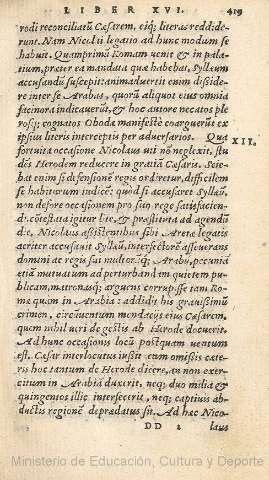 LIBER XVI. 419
rodi reconciliatũ Cæsarem, eiq; literas reddide-
runt. Nam Nicolai legatio ad hunc modum se
habuit. Quamprimũ Romam venit & in pala-
tium, præter ea mandata quæ habebat, Syllæum
accusandũ suscepit: animaduertit enim disside-
re inter se Arabas, quorũ aliquot eius omnia
facinora indicauerũt, & hoc autore necatos ple-
rosq; cognatos Obodæ manifestè coarguerũt ex
ipsius literis interceptis per aduersarios. Qua XII.
fortuita occasione Nicolaus uti nõ neglexit, stu-
dẽs Herodem reducere in gratiã Cæsaris. Scie-
bat enim si defensionẽ regis ordiretur, difficilẽ
se habiturum iudicẽ: quòd si accusaret Syllæũ,
non defore occasionem pro suo rege satisfacien-
di. cõtestata igitur lite, & præstituta ad agendũ
die, Nicolaus assistentibus sibi Aretæ legatis
acriter accusauit Syllæũ, interfectorẽ asseuerans
domini ac regis sui multorũq; Arabũ, pecuniã
etiã mutuatum ad perturbandam quietem pu-
blicam, matronasq; arguens corrupisse tam Ro-
mæ quàm in Arabia: addidit his grauissimũ
crimen, circũuentum mendacijs eius Cæsarem,
quem nihil ueri de gestis ab Herode docuerit.
Ad hunc occasionis locũ postquam uentum
est, Cæsar interlocutus iussit eum omissis cæte-
ris hoc tantum de Herode dicere, an non exer-
citum in Arabiã duxerit, neq; duo milia &
quingentos illic interfecerit, neq; captiuis ab-
ductis regionẽ deprædatus sit. Ad hæc Nico-
DD 2 laus
Ministerio de Educación, Cultura y Deporte